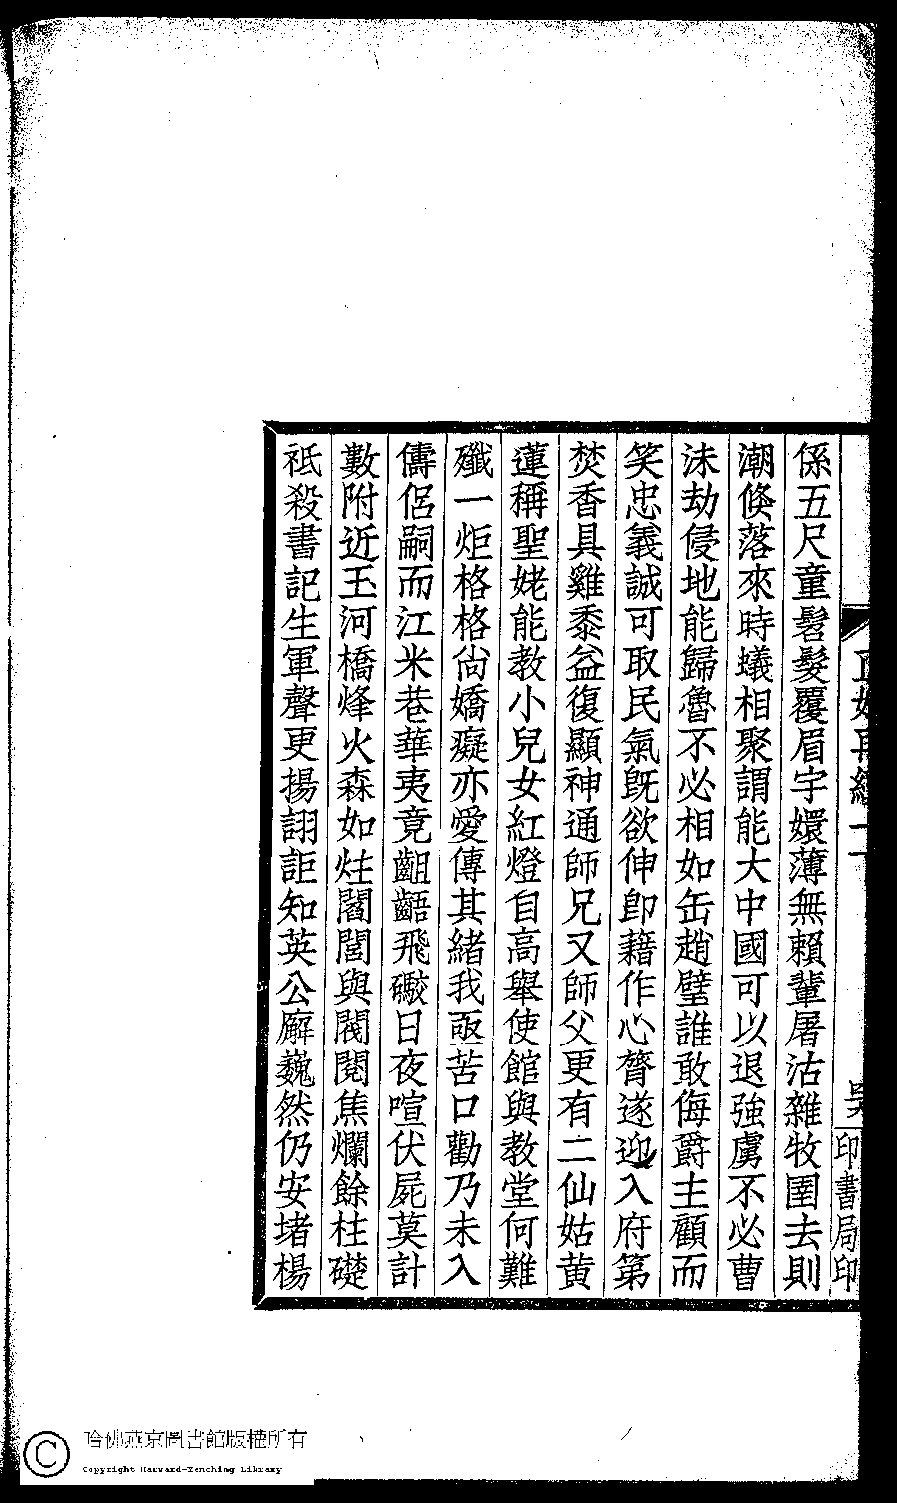 印書局印
係五尺童髫髮覆眉宇嬛薄無賴輩屠沽雜牧圉去則
潮倏落來時蟻相聚謂能大中國可以退強虜不必曹
沬劫侵地能歸魯不必相如缶趙璧誰敢侮爵主顧而
笑忠義誠可取民氣旣欲伸卽藉作心膂遂迎入府第
焚香具雞黍益復顯神通師兄又師父更有二仙姑黄
蓮稱聖姥能教小兒女紅燈自高舉使館與教堂何難
殲一炬格格尙嬌癡亦愛傳其緒我亟苦口勸乃未入
儔侶嗣而江米巷華夷竟齟齬飛礮日夜喧伏屍莫計
數附近玉河橋烽火森如炷閻閭與閥閱焦爛餘柱礎
祗殺書記生軍聲更揚詡詎知英公廨巍然仍安堵楊
哈佛燕京圖書館版權所有
Copyright Harvard-Yenching Library